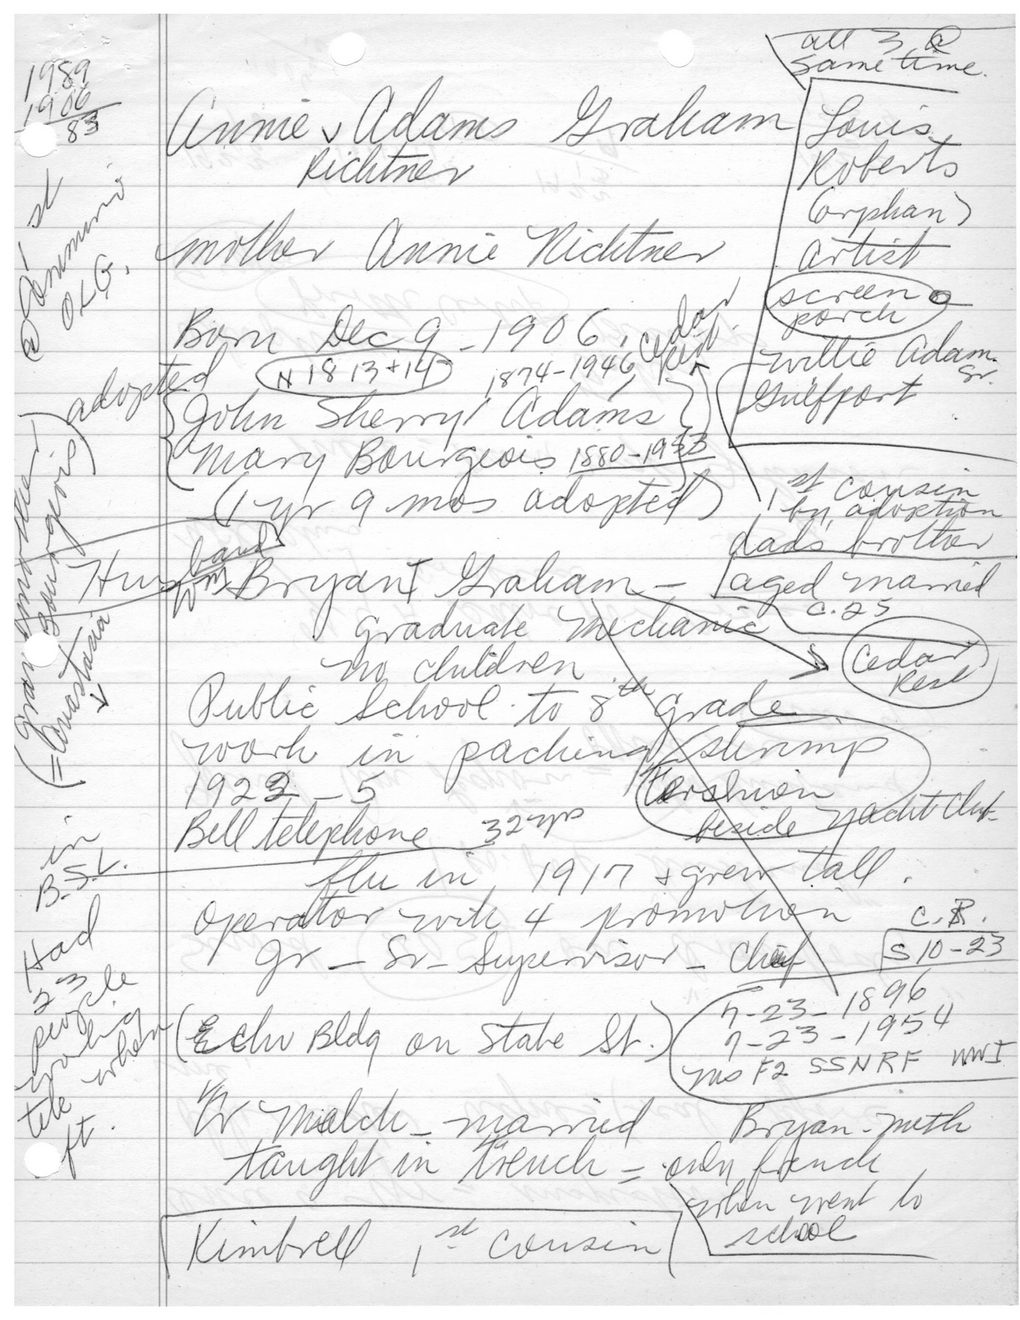 all 3 @
same time.
1989
1906
83
Annie Adams Graham
Richtner
Louis
Roberts
(orphan)
artist
screen
porch
Willie Adam
Sr.
Gulfport
mother Annie Richtner
@ 1st
Communi
OLG.
Born Dec 9 - 1906
Cedar
Rest
N 18 13 + 14
1874-1946
adopted
John Sherry Adams
Mary Bourgeois 1880-1953
(1 yr 9 mos adopted)
1st cousin
by adoption
dads brother
(grandmother
Bourgeois)
= Anastasia
Husband
Wm Bryant Graham -
aged married
c. 25
graduate mechanic
no children
Cedar
Rest
Public School to 8th grade
work in packing shrimp
1922 - 5
beside Yacht Club
Bell telephone 32 yrs
in
B.S.L.
flu in 1917 + grew tall.
operator with 4 promotion
C.R.
S 10-23
Jr - Sr - Supervisor - Chief
Had
23
people
working
tele when
ft.
7-23-1896
7-23-1954
Ms F2 SSNRF WWI
(Echo Bldg on State St.)
married
Bryan - meth
taught in french = only french
when went to
school
Kimbrell 1st cousin